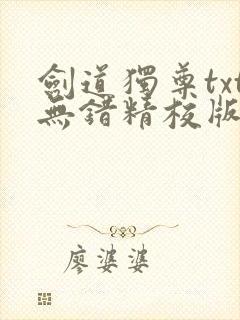 劍道獨尊txt
無錯精校版
廖婆婆